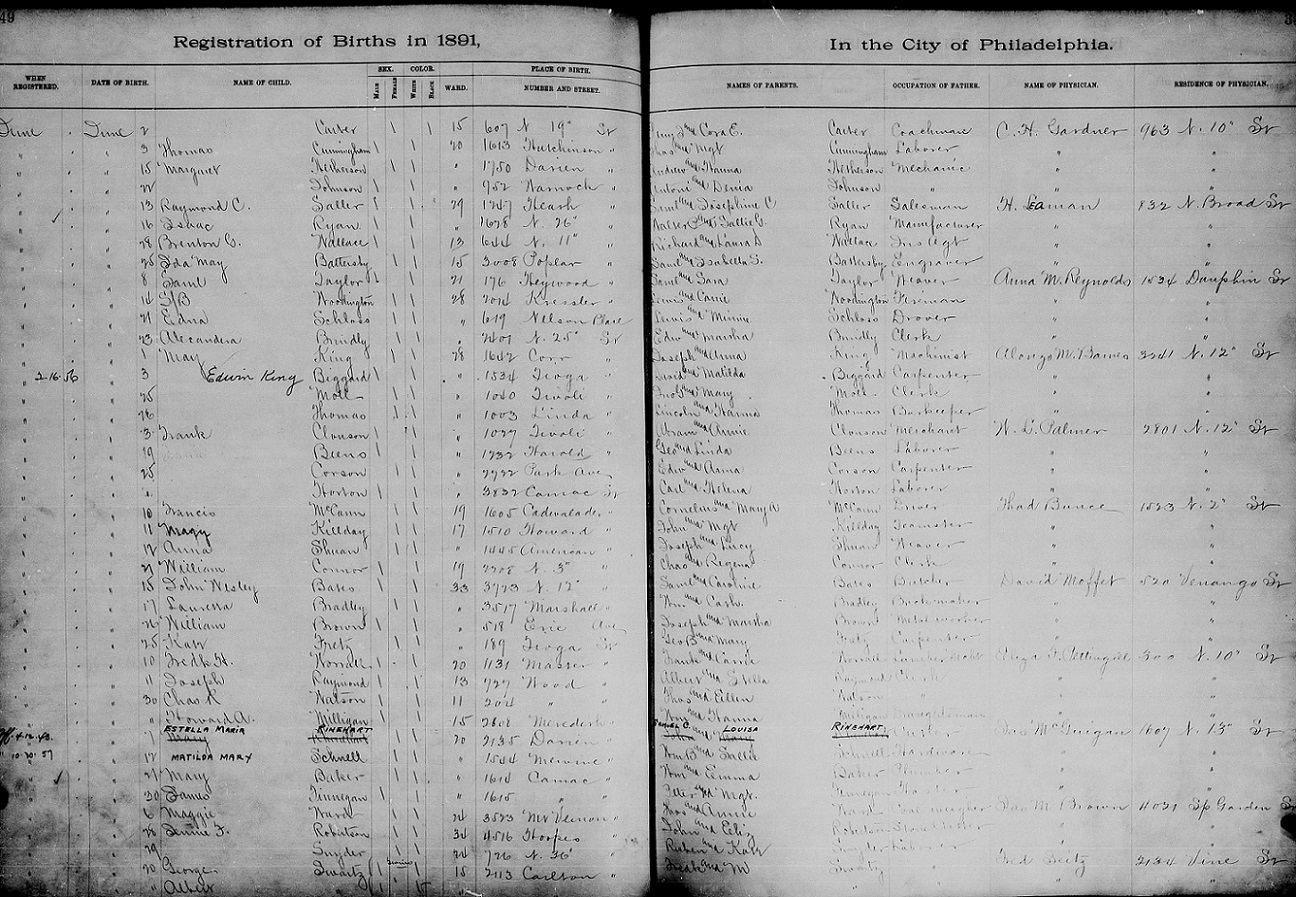 49
Registration of Births in 1891, In the City of Philadelphia.
WHEN REGISTERED. DATE OF BIRTH. NAME OF CHILD. SEX. Male Female COLOR. White Black WARD. PLACE OF BIRTH. NUMBER AND STREET. NAMES OF PARENTS. OCCUPATION OF FATHER. NAME OF PHYSICIAN. RESIDENCE OF PHYSICIAN.
June June 2 Carter 15 607 N 19" St and Cora E. Carter Coachman C. H. Gardner 963 N. 10" St
" " 3 Thomas Cunningham 20 1613 Hutchinson " and Mgt Cunningham Laborer " "
" " 15 Margaret Ketherson " 1750 Darien " Andrew and Hanna Ketherson Mechanic " "
" " 22 Johnson " 952 Warnock " Antoni and Denia Johnson " " "
" " 13 Raymond C. Saller 29 1247 Heath " Saml and Josephine C Saller Salesman H. Leaman 832 N. Broad St
" " 16 Isaac Ryan " 1628 N. 26" " Walter and Sallie Ryan Manufacturer " "
" " 28 Brenton S. Wallace 13 644 N. 11" " Richard and Laura S Wallace Ins Agt " "
" " 25 Ida May Battersby 15 3008 Poplar " Saml and Isabella S. Battersby Engraver " "
" " 8 Saml Taylor 21 176 Heywood " Saml and Sara Taylor Weaver Anna M. Reynolds 1534 Dauphin St
" " 14 Woodington 28 2014 Kressler " and Carrie Woodington Fireman " "
" " 21 Edna Schloss " 619 Nelson Place Lewis and Minnie Schloss Drover " "
" " 23 Alexandera Brindly " 2401 N. 25" St Edw and Martha Brindly Clerk " "
" " 1 May King 28 1642 Corr " Joseph and Anna King Machinist Alonzo M. Barnes 3241 N. 12" St
" 2-16-56 " 3 Edwin King Biggard " 1534 Tioga " David and Matilda Biggard Carpenter " "
" " 25 Moll " 1040 Tivoli " and Mary Moll Clerk " "
" " 26 Thomas " 1003 Linda " Lincoln and Hanna Thomas Barkeeper " "
" " 3 Frank Clouson " 1027 Tivoli " Abram and Annie Clouson Merchant W. L. Palmer 2801 N. 12" St
" " 19 Beens " 1232 Harold " Geo and Linda Beens Laborer " "
" " 25 Corson " 2722 Park Ave Edw and Anna Corson Carpenter " "
" " " Horton " 3832 Camac St Carl and Helena Horton Laborer " "
" " 10 Francis McCann 19 1605 Cadwalader " Cornelius and Mary A McCann Driver Thad Bunce 1523 N. 2" St
" " 11 Mary Killday 17 1510 Howard " John and Mgt Killday Teamster " "
" " 12 Anna Shuan " 1445 American " Joseph and Lucy Shuan Weaver " "
" " 27 William Connor 19 2208 N. 3" " Chas and Regena Connor Clerk " "
" " 15 John Wesley Bates 33 3723 N. 12" " Saml and Caroline Bates Butcher David Moffet 520 Venango St
" " 17 Laurena Bradley " 3517 Marshall " Wm and Cath. Bradley Brickmaker " "
" " 21 William Brown " 518 Erie Ave Joseph and Martha Brown Metal worker " "
" " 25 Katy Fretz " 189 Tioga St Geo B and Mary Fretz Carpenter " "
" " 10 Fredk H. Worrall 20 1131 Master " Frank and Carrie Worrall Lumber Mcht Eliza F. Pettingill 300 N. 10" St
" " 11 Joseph Raymond 13 727 Wood " Albert and Stella Raymond Clerk " "
" " 30 Chas R Watson 11 204 " " Thos and Ellen Watson " "
" " " Howard A. Milligan 15 2208 Meredeth " Wm and Hanna Milligan Draughtsman " "
4-12-43. " 1 ESTELLA MARIA RINEHART 20 2135 Darien " LOUISA RINEHART Jas McGuigan 1607 N. 13" St
" 10-20-57 " 17 MATILDA MARY Schnell " 1544 Mervine " Wm B and Sallie Schnell Hardware " "
" " 21 Mary Baker " 1614 Camac " Wm and Emma Baker Plumber " "
" " 30 James Finnegan " 1615 " " Peter and Mgt. Finnegan " "
" " 6 Maggie Ward 24 3523 Mt Vernon " and Annie Ward Jas M. Brown 4031 Sp Garden St
" " 28 Jennie F. Robitson 34 4516 Hoopes " John and Eliz Robitson " "
" " 29 Snyder 24 726 N. 36" " Ruben and Kate Snyder Laborer " "
" " 20 George Swartz 15 2113 Carlton " Fredk and M Swartz Fred Seitz 2134 Vine St
" " " Albert " " " "